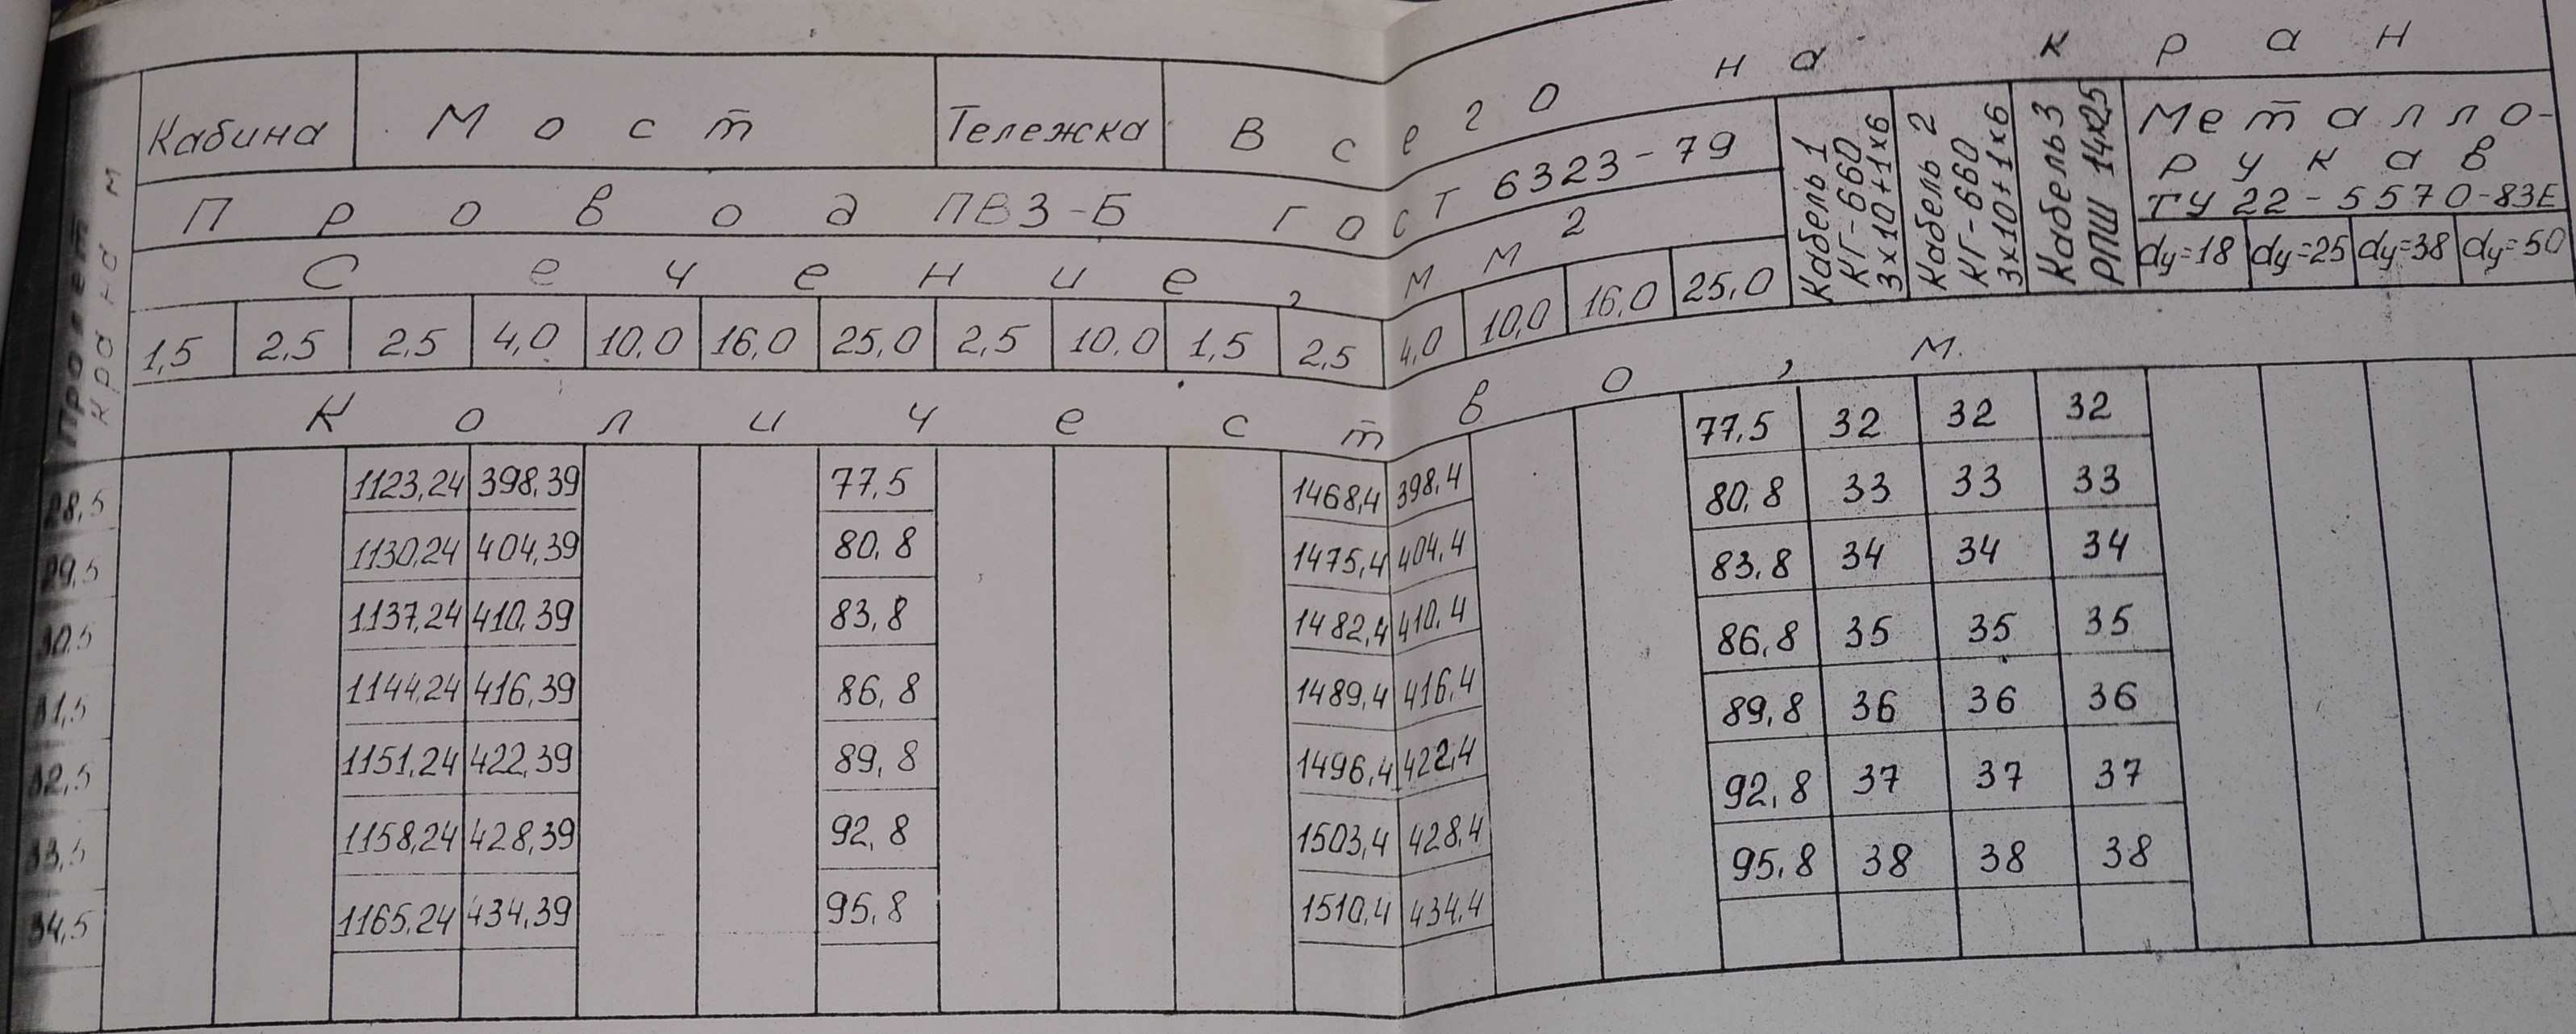 Пролет крана м
Кабина Мост Тележка Всего на кран
Провод ПВ3-Б ГОСТ 6323-79
Сечение, мм2
Кабель 1 КГ-660 3х10+1х6
Кабель 2 КГ-660 3х10+1х6
Кабель 3 РПШ 14х2,5
Металло-
рукав
ТУ 22-5570-83Е
dу=18 dу=25 dу=38 dу=50
1,5 2,5 2,5 4,0 10,0 16,0 25,0 2,5 10,0 1,5 2,5 4,0 10,0 16,0 25,0
Количество, м.
28,5 1123,24 398,39 77,5 1468,4 398,4 77,5 32 32 32
29,5 1130,24 404,39 80,8 1475,4 404,4 80,8 33 33 33
30,5 1137,24 410,39 83,8 1482,4 410,4 83,8 34 34 34
31,5 1144,24 416,39 86,8 1489,4 416,4 86,8 35 35 35
32,5 1151,24 422,39 89,8 1496,4 422,4 89,8 36 36 36
33,5 1158,24 428,39 92,8 1503,4 428,4 92,8 37 37 37
34,5 1165,24 434,39 95,8 1510,4 434,4 95,8 38 38 38